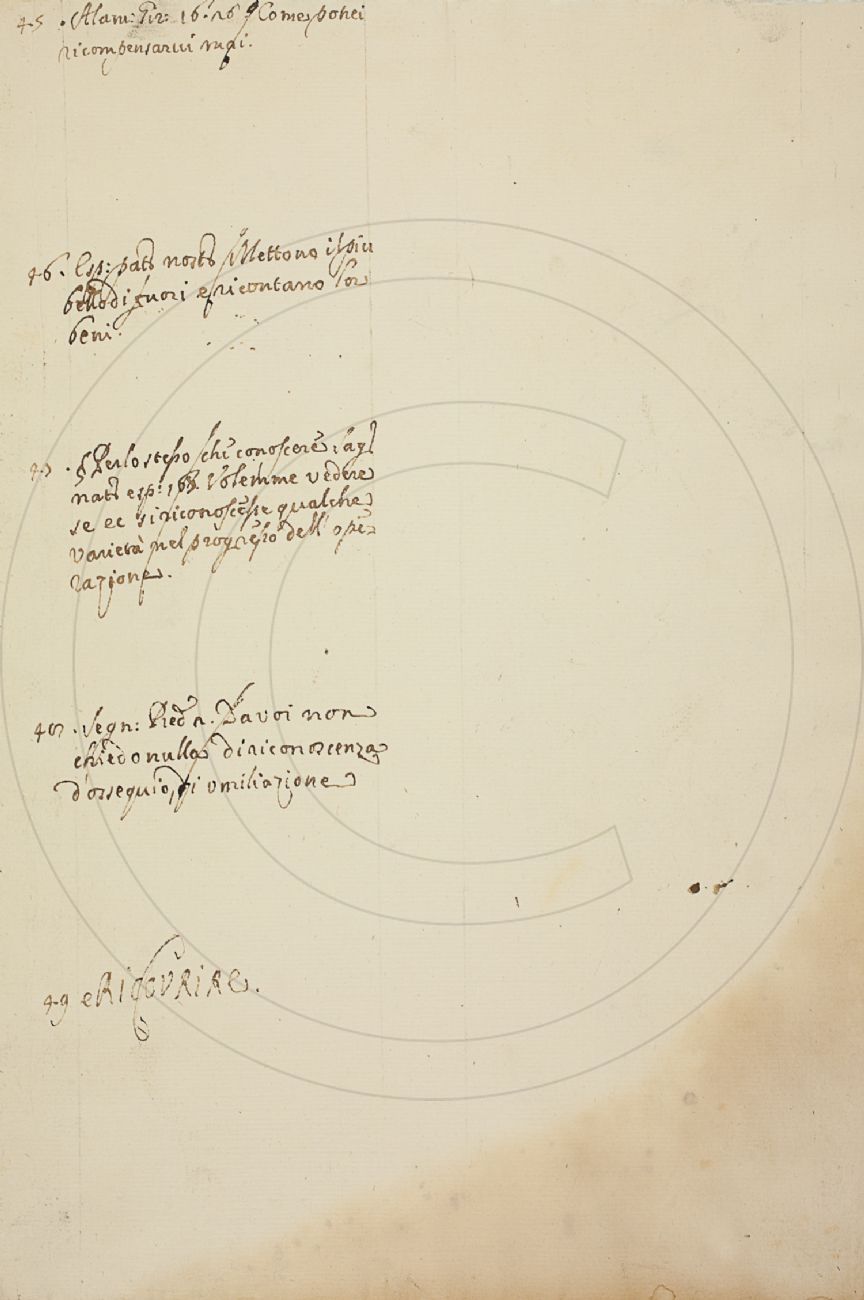 45. Alam: Gir: 16. 26 Come potrei
ricompensarvi mai.
46. Esp: nat: nost: Mettono il piu
bello di fuori e ricontano lor
beni.
47. Per lo stesso che conoscere: sag:
nat: esp: 168. Volemme vedere
se ee si riconoscesse qualche
varietà nel progresso dell' ope-
razione.
48. Segn: Pred: Da voi non
chiedo nulla di riconoscenza
d'ossequio, di umiliazione
49 e RICOVRIRE.